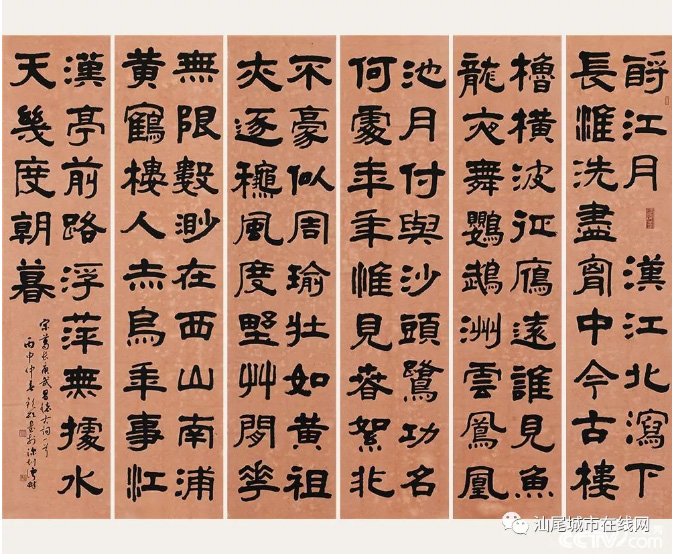 酹江月 漢江北瀉下
長淮洗盡胷中今古樓
櫓橫波征鴈遠誰見魚
龍夜舞鸚鵡洲雲鳳凰
池月付與沙頭鷺功名
何處年年惟見春絮非
不豪似周瑜壯如黃祖
亦逐龝風度野艸閒華
無限數渺在西山南浦
黃鶴樓人赤烏年事江
漢亭前路浮萍無據水
天幾度朝暮
宋葛長庚武昌懷古詞一首
丙申仲春
汕尾城市在线网
CCTV.com